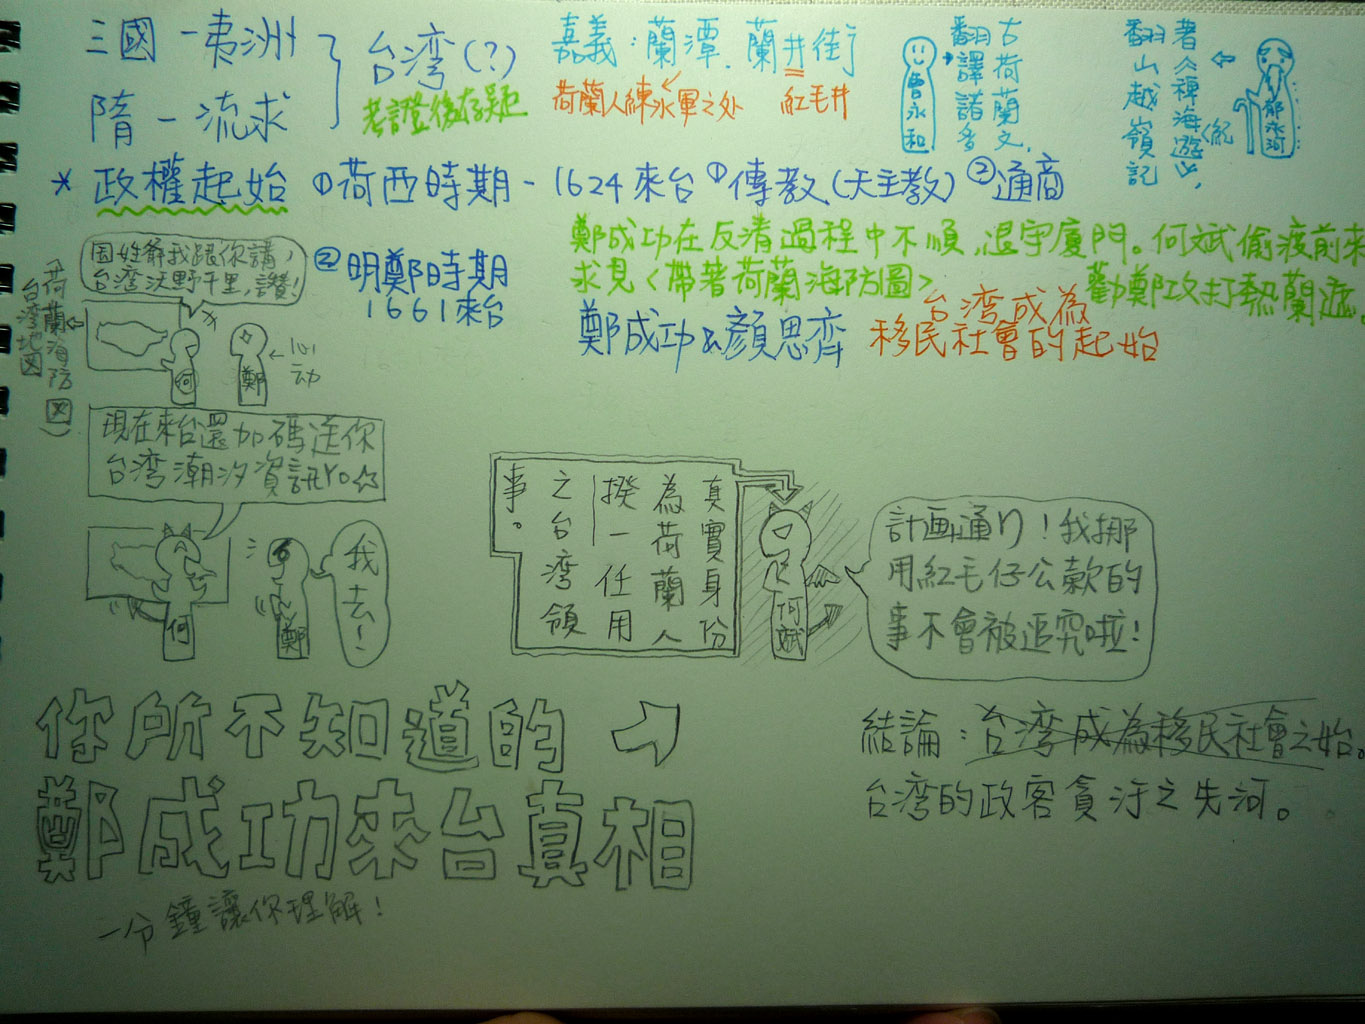 三國－夷洲
隋－流求
台湾(?)
考證後存疑
嘉義：蘭潭、蘭井街
荷蘭人練水軍之处
紅毛井
古荷蘭文，
翻譯諸多
曾永和
著〈裨海遊記〉，
翻山越嶺記
郁永河
* 政權起始 ①荷西時期 - 1624來台 ①傳教(天主教) ②通商
②明鄭時期
1661來台
鄭成功在反清過程中不順，退守廈門。何斌偷渡前來
求見〈帶著荷蘭海防圖〉
勸鄭攻打熱蘭遮。
鄭成功&顏思齊
台湾成為
移民社會的起始
国姓爺我跟你講，
台湾沃野千里，讚！
荷蘭海防図
台湾地図
何
鄭
心动
現在來台還加碼送你
台湾潮汐資訊YO☆
何
鄭
我去！
真實身份
為荷蘭人
揆一任用
之台湾領
事。
何斌
計画通り！我挪
用紅毛仔公款的
事不會被追究啦！
你所不知道的
鄭成功來台真相
一分鐘讓你理解！
結論：台湾成為移民社會之始。
台湾的政客貪汙之先河。